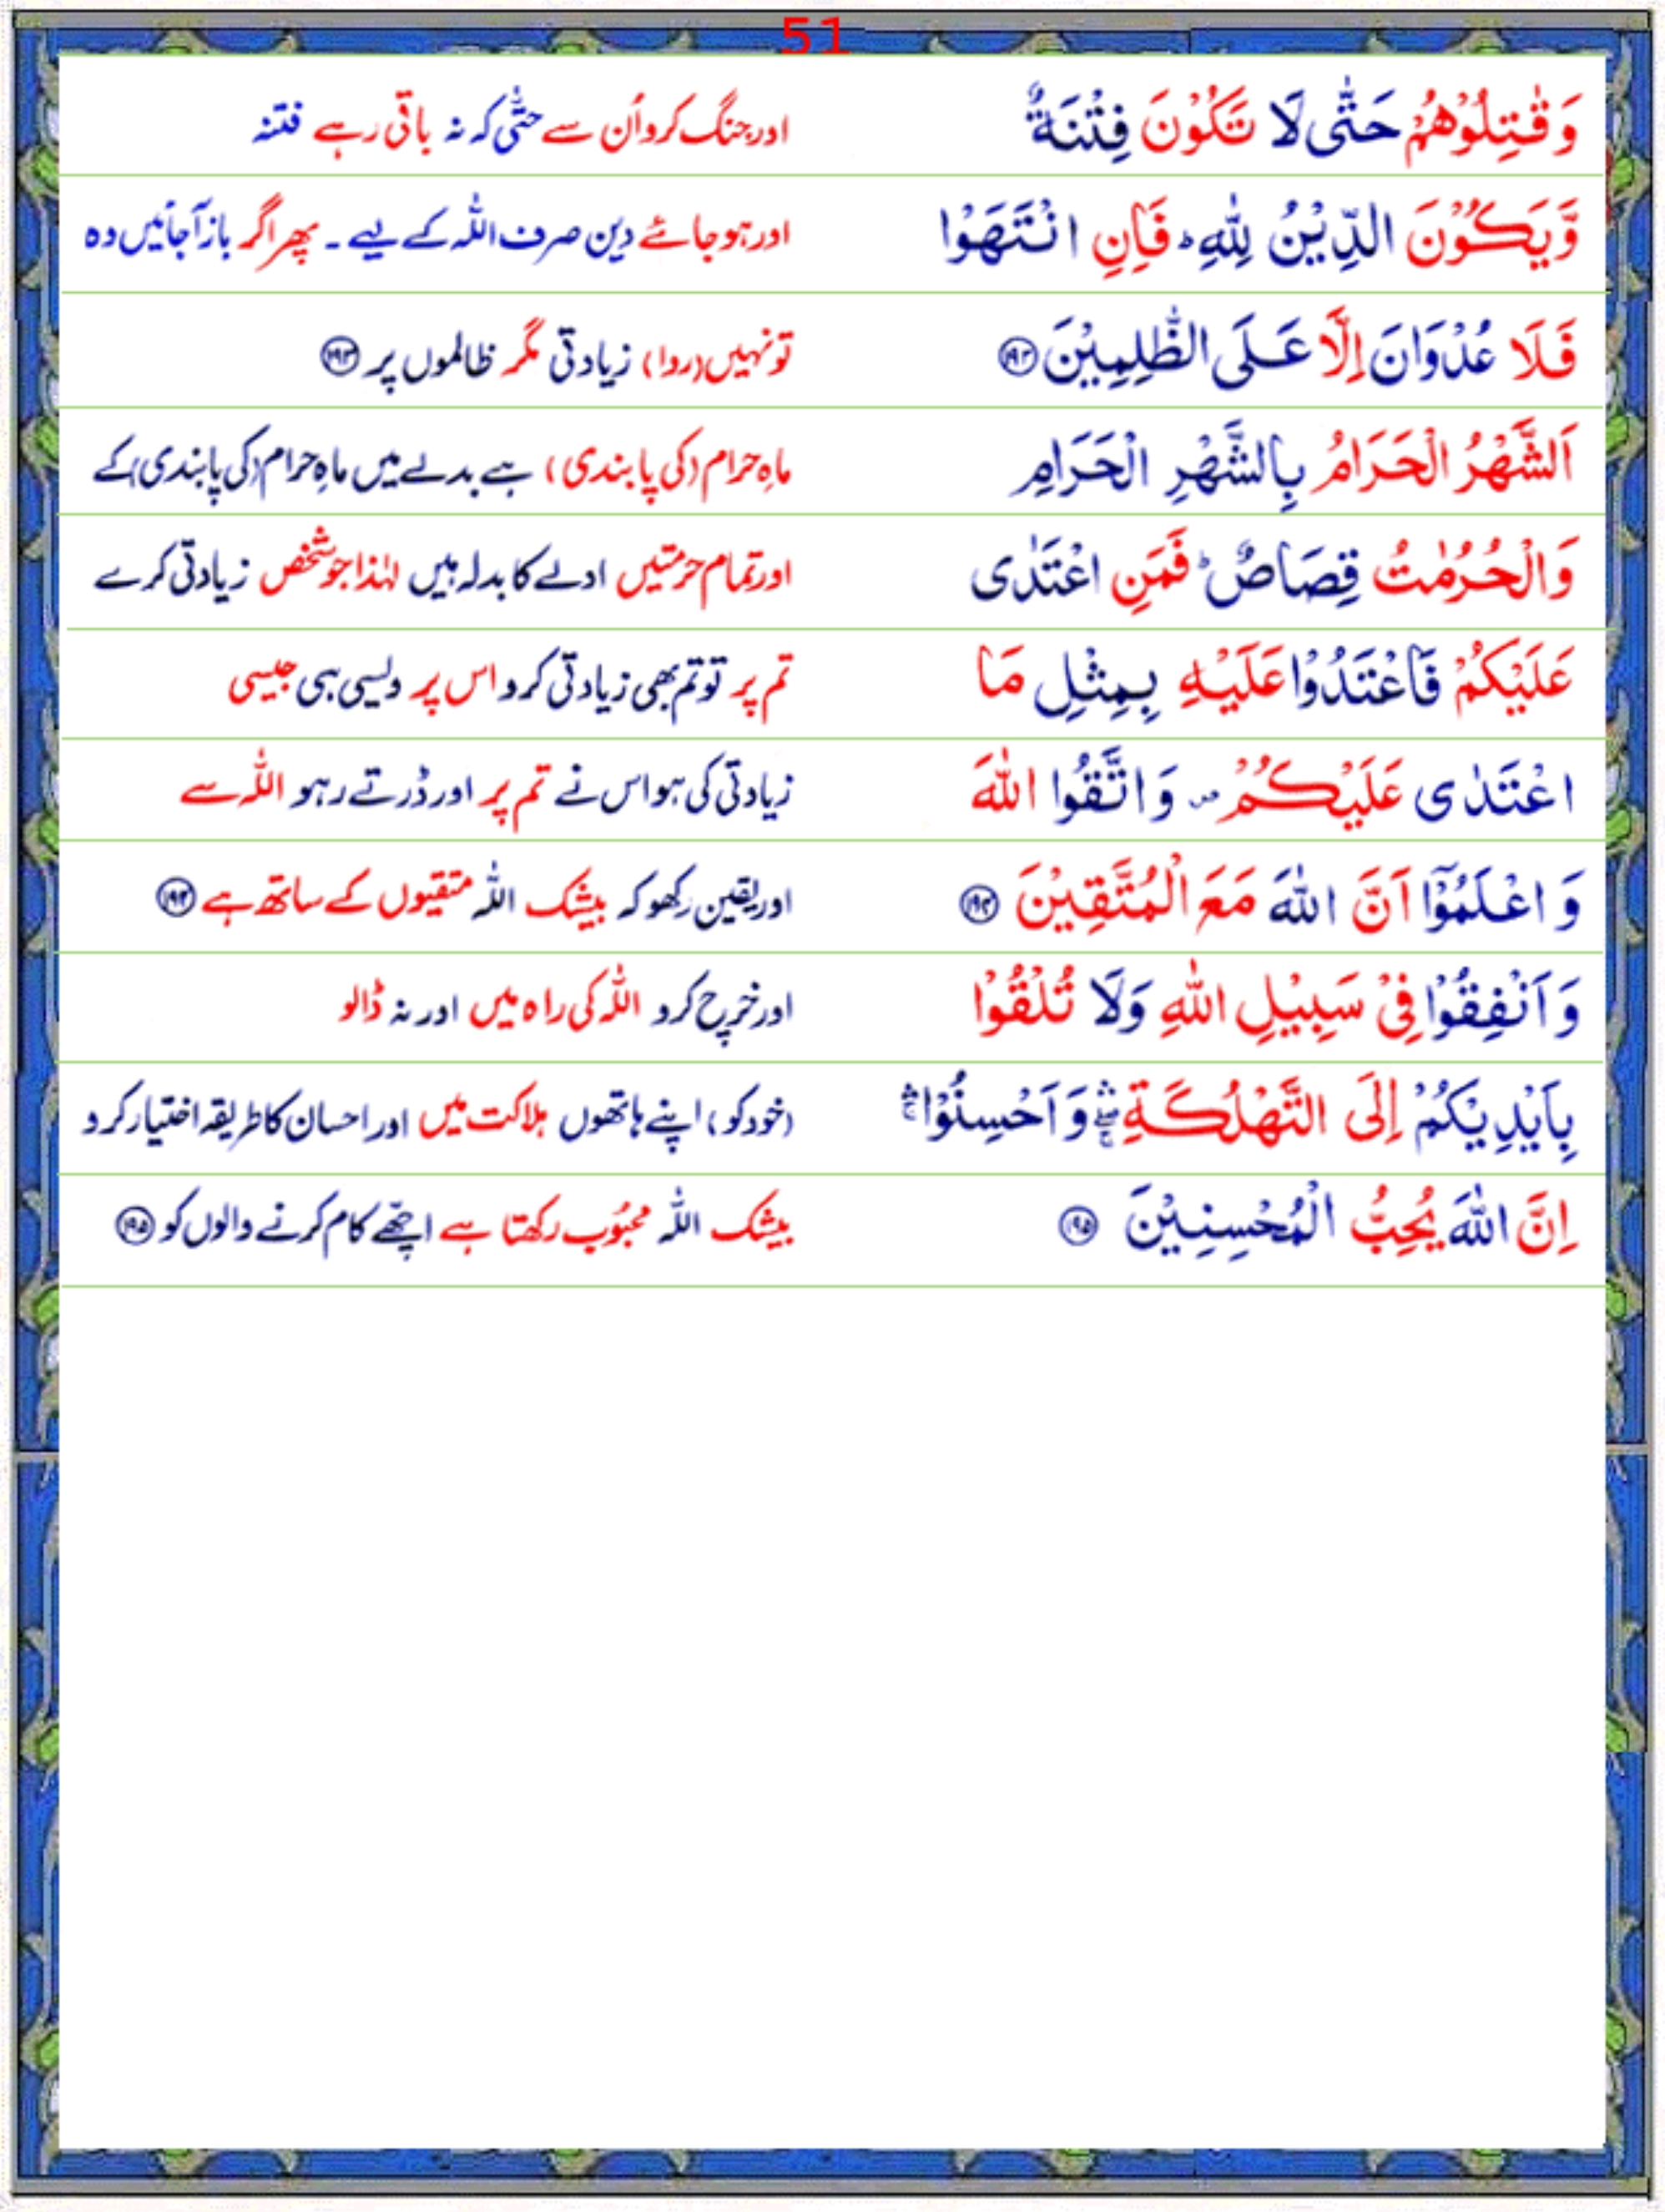 51
وَقٰتِلُوْهُمْ حَتّٰى لَا تَكُوْنَ فِتْنَةٌ اور جنگ کرو اُن سے حتّٰی کہ نہ باقی رہے فتنہ
وَّيَكُوْنَ الدِّيْنُ لِلّٰهِ ؕ فَاِنِ انْتَهَوْا اور ہو جائے دین صرف اللہ کے لیے ۔ پھر اگر باز آجائیں وہ
فَلَا عُدْوَانَ اِلَّا عَلَى الظّٰلِمِيْنَ ۝۱۹۳ تو نہیں (روا) زیادتی مگر ظالموں پر ۝۱۹۳
اَلشَّهْرُ الْحَرَامُ بِالشَّهْرِ الْحَرَامِ ماہِ حرام (کی پابندی) ہے بدلے میں ماہِ حرام (کی پابندی) کے
وَالْحُرُمٰتُ قِصَاصٌ ؕ فَمَنِ اعْتَدٰى اور تمام حرمتیں ادلے کا بدلہ ہیں لہٰذا جو شخص زیادتی کرے
عَلَيْكُمْ فَاعْتَدُوْا عَلَيْهِ بِمِثْلِ مَا تم پر تو تم بھی زیادتی کرو اس پر ویسی ہی جیسی
اعْتَدٰى عَلَيْكُمْ ۪ وَاتَّقُوا اللّٰهَ زیادتی کی ہو اس نے تم پر اور ڈرتے رہو اللہ سے
وَاعْلَمُوْۤا اَنَّ اللّٰهَ مَعَ الْمُتَّقِيْنَ ۝۱۹۴ اور یقین رکھو کہ بیشک اللہ متقیوں کے ساتھ ہے ۝۱۹۴
وَاَنْفِقُوْا فِىْ سَبِيْلِ اللّٰهِ وَلَا تُلْقُوْا اور خرچ کرو اللہ کی راہ میں اور نہ ڈالو
بِاَيْدِيْكُمْ اِلَى التَّهْلُكَةِ ۛۚ وَاَحْسِنُوْا ۛۚ (خود کو) اپنے ہاتھوں ہلاکت میں اور احسان کا طریقہ اختیار کرو
اِنَّ اللّٰهَ يُحِبُّ الْمُحْسِنِيْنَ ۝۱۹۵ بیشک اللہ محبُوب رکھتا ہے اچھّے کام کرنے والوں کو ۝۱۹۵